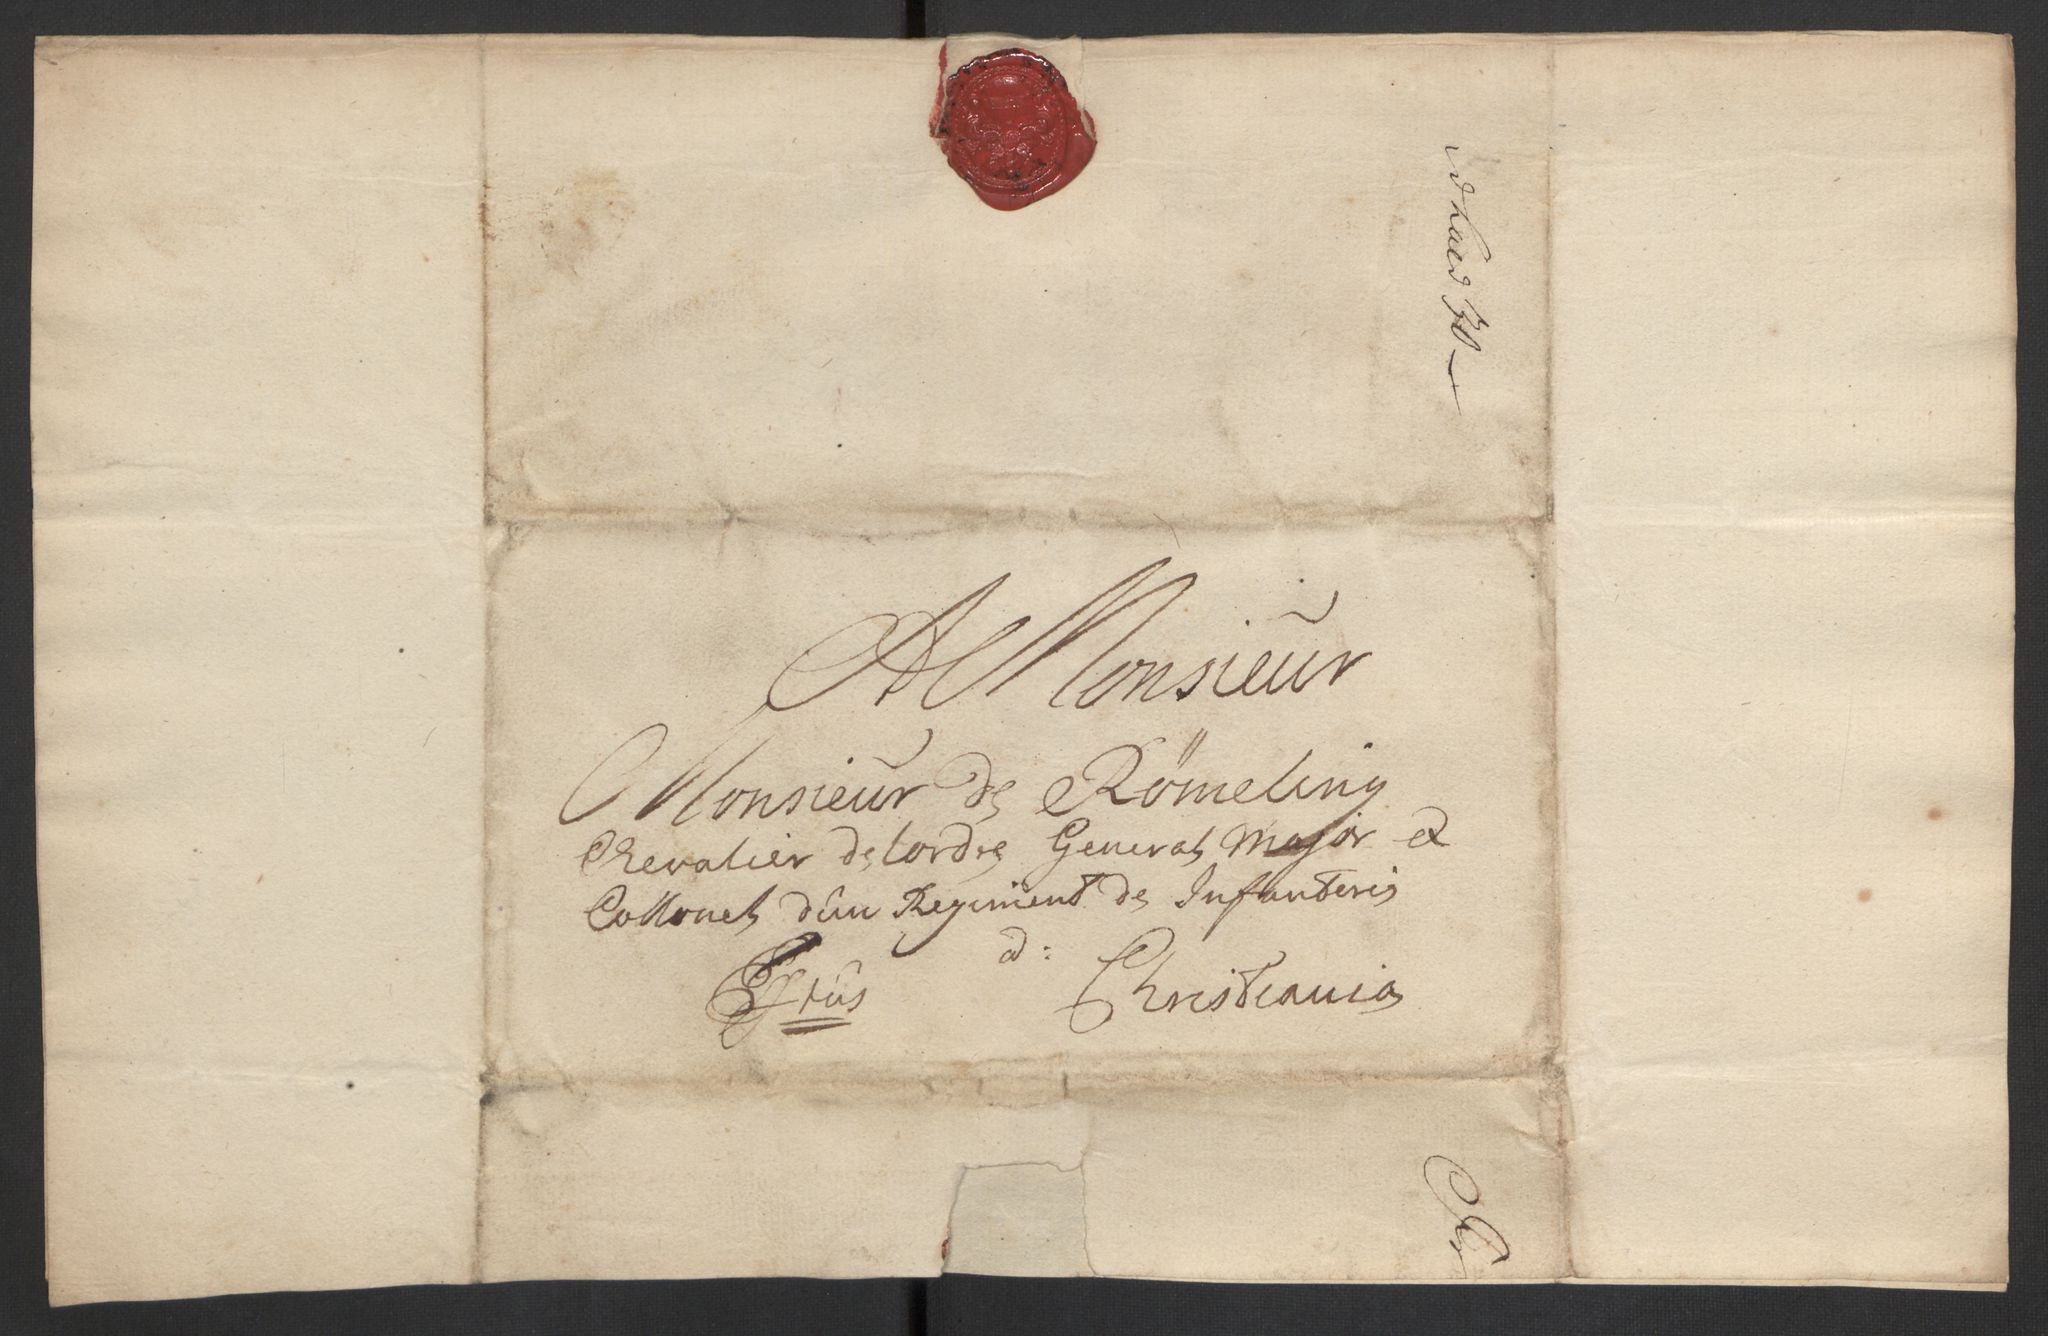 A Monsieur
Monsieur de Römeling
Chevalier de lordre General Major et
Collonel dún Regiment de Infanterie
a:
Christiania